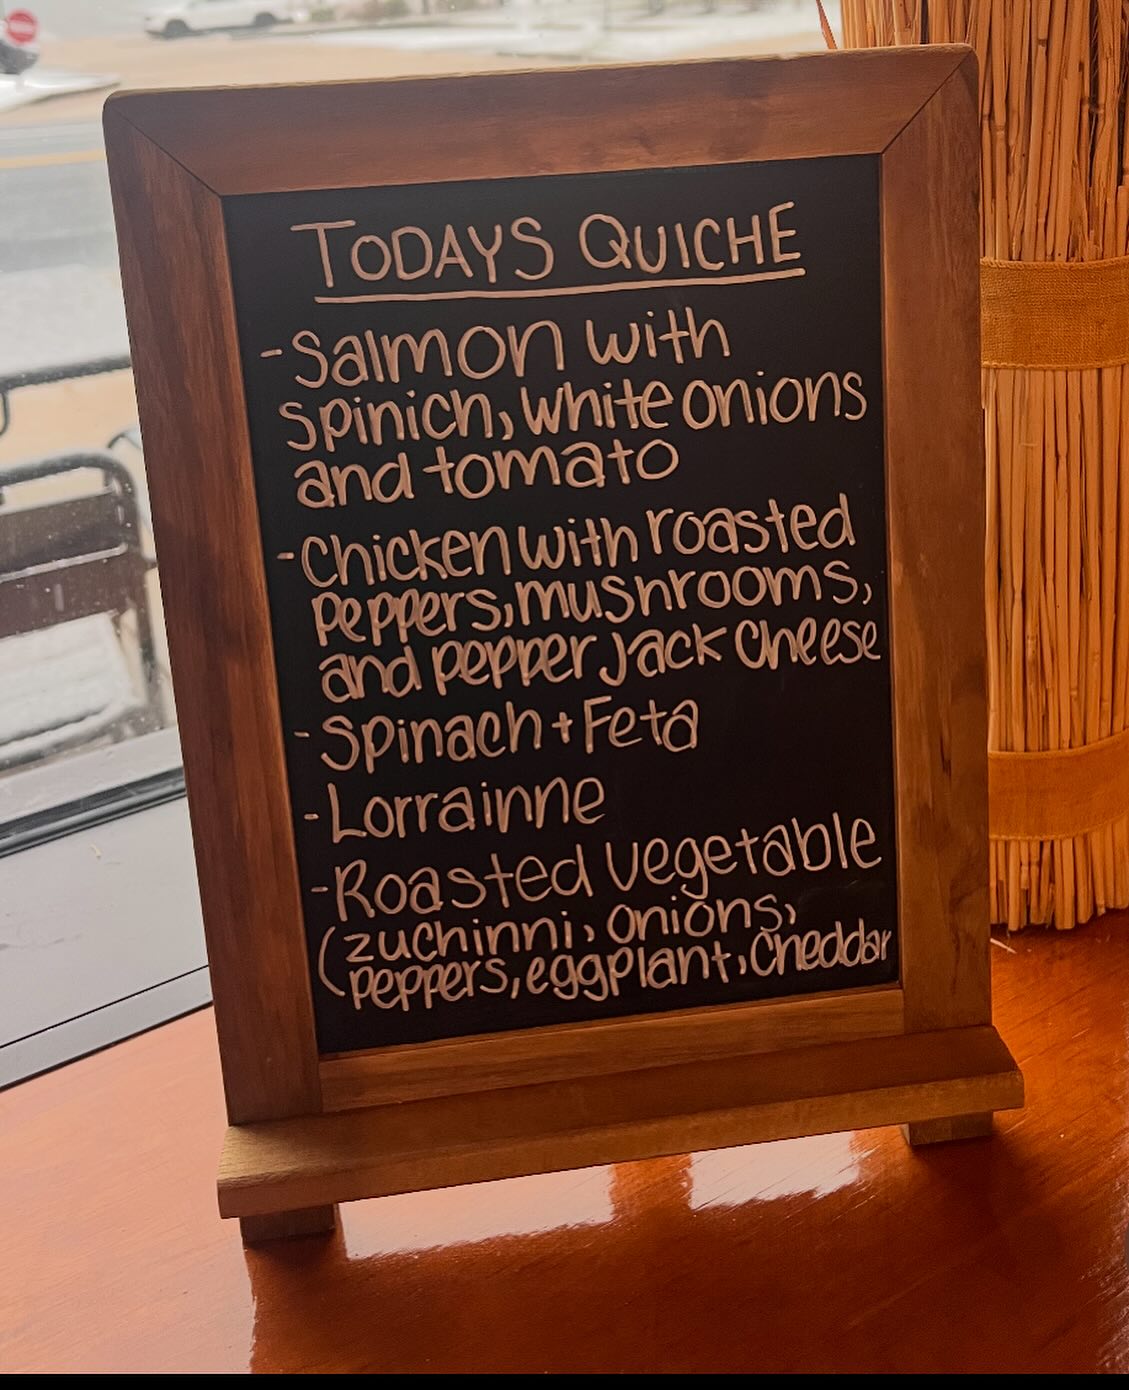 TODAYS QUICHE
- Salmon with
spinich, white onions
and tomato
- Chicken with roasted
peppers, mushrooms,
and pepper jack cheese
- Spinach + Feta
- Lorrainne
- Roasted vegetable
(zuchinni, onions,
peppers, eggplant, cheddar